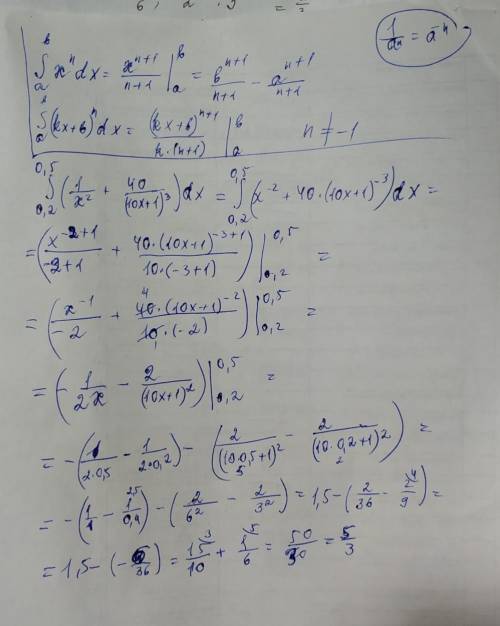 1/aⁿ = a⁻ⁿ
∫ₐᵇ xⁿdx = xⁿ⁺¹/(n+1) |ₐᵇ = bⁿ⁺¹/(n+1) - aⁿ⁺¹/(n+1)
∫ₐᵇ (kx+b)ⁿdx = (kx+b)ⁿ⁺¹/(k·(n+1)) |ₐᵇ n ≠ -1
∫_{0,2}^{0,5} (1/x² + 40/(10x+1)³)dx = ∫_{0,2}^{0,5} (x⁻² + 40·(10x+1)⁻³)dx =
= (x⁻²⁺¹/(-2+1) + 40·(10x+1)⁻³⁺¹/(10·(-3+1))) |_{0,2}^{0,5} =
= (x⁻¹/(-2) + 40·(10x+1)⁻²/(10·(-2))) |_{0,2}^{0,5} =
= (- 1/(2x) - 2/(10x+1)²) |_{0,2}^{0,5} =
= -(1/(2·0,5) - 1/(2·0,2)) - (2/(10·0,5+1)² - 2/(10·0,2+1)²) =
= -(1/1 - 1/0,4) - (2/6² - 2/3²) = 1,5 - (2/36 - 2/9) =
= 1,5 - (- 6/36) = 15/10 + 1/6 = 50/30 = 5/3